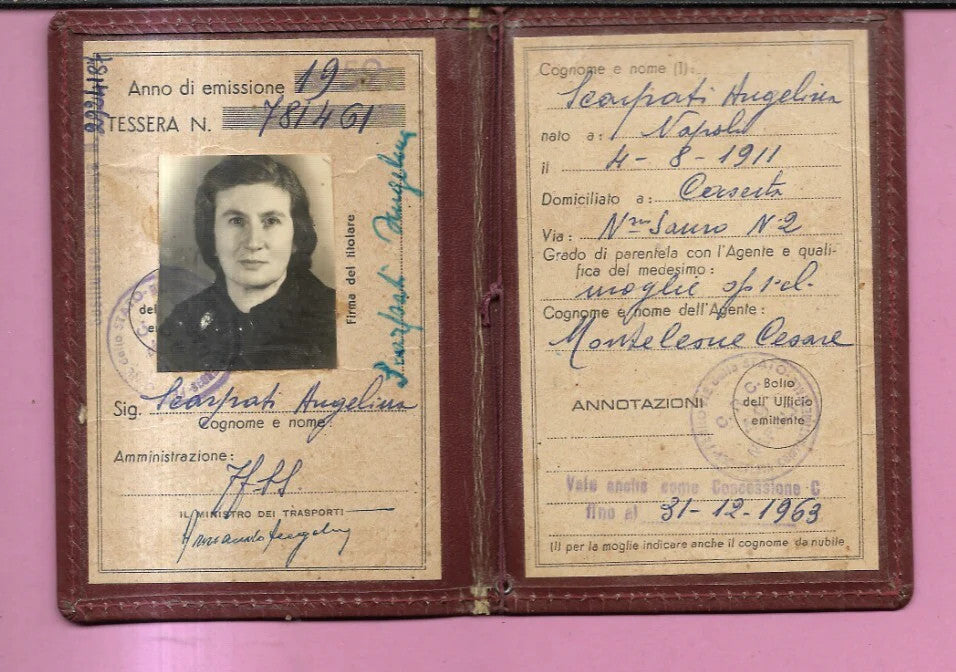 Anno di emissione 19
TESSERA N. 781461
Firma del titolare
Scarpati Angelina
Sig. Scarpati Angelina
Cognome e nome
Amministrazione:
FF.SS.
IL MINISTRO DEI TRASPORTI
Cognome e nome (1):
Scarpati Angelina
nato a: Napoli
il 4-8-1911
Domiciliato a: Caserta
Via: N. Sauro N. 2
Grado di parentela con l'Agente e quali-
fica del medesimo:
moglie
Cognome e nome dell'Agente:
Monteleone Cesare
ANNOTAZIONI
Bollo
dell'Ufficio
emittente
Vale anche come Concessione C
fino al 31-12-1963
(1) per la moglie indicare anche il cognome da nubile